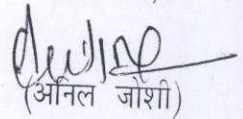 (अनिल जोशी)